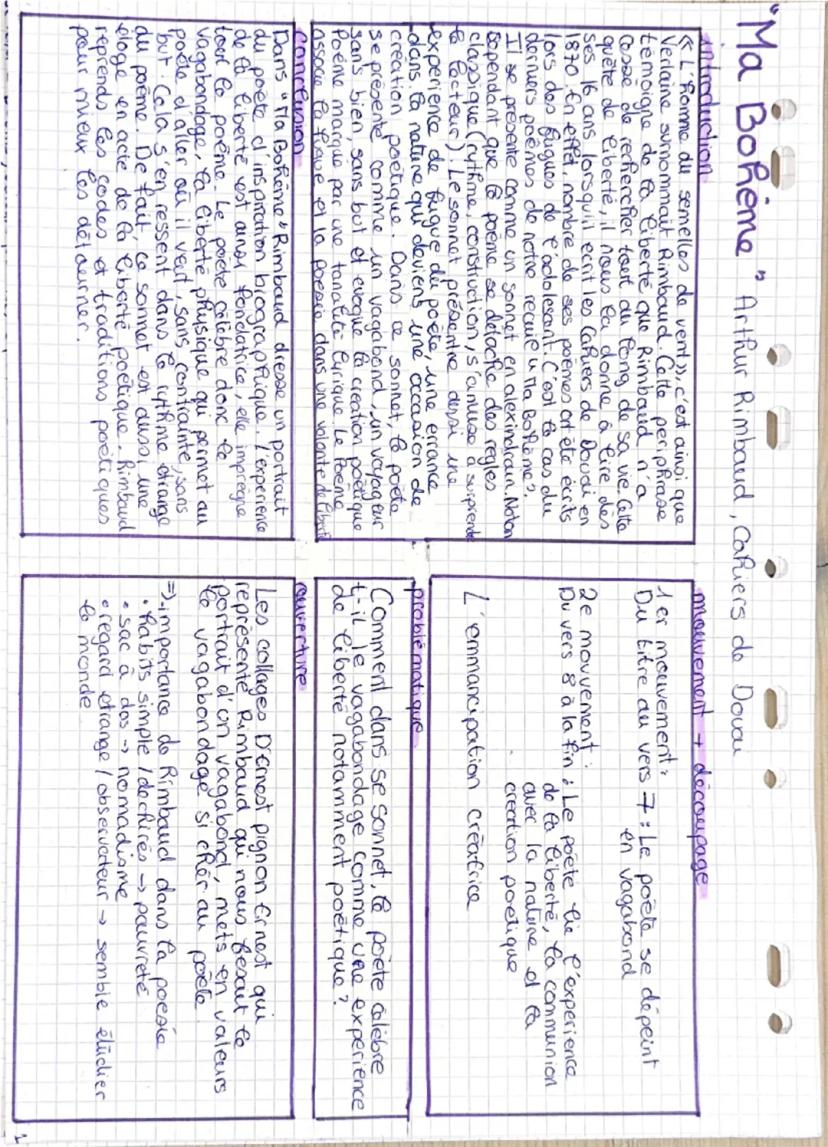 "Ma Bohème" Arthur Rimbaud, Cahiers de Douai
introduction
« L'homme du semelles de vent», c'est ainsi que
Verlaine surnommait Rimbaud. Cette periphrase
témoigne de la liberté que Rimbaud n'a
cesse de rechercher tout du long de sa vie. Cette
quête de liberté, il nous la donne à lire dès
ses 16 ans lorsqu'il ecrit les Cahiers de Douai en
1870. En effet, nombre de ses poemes ont été écrits
lors des fugues de l'adolescent. C'est le cas du
derniers poèmes de notre recueil « Ma Bohème».
Il se presente comme un sonnet en alexindrain. Noton
cependant que le poème se détache des règles
classique (rythme, construction, s'amuse à surprendre
le lecteur). Le sonnet présentre ainsi une
experience de fugue du poète, une errance
dans la nature qui deviens une occasion de
création poétique. Dans ce sonnet, le poète
se présente comme un vagabond, un voyageur
sans bien sans but et evoque la création poétique
Poème marqué par une tonalité lyrique Le Poème
associe la fugue et la poésie dans une volonté de liberté
conclusion
Dans "Ma Bohème" Rimbaud dresse un portrait
du poète d'inspiration biographique. l'expérience
de la liberté est ainsi fondatrice, elle imprègne
tout le poème. Le poète célèbre donc le
vagabondage, la liberté physique qui permet au
poète d'aller où il veut, sans contrainte, sans
but. Cela s'en ressent dans le rythme étrange
du poème. De fait, ce sonnet est aussi une
éloge en acte de la liberté poétique. Rimbaud
reprends les codes et traditions poétiques
pour mieux les détourner.
mouvement + découpage
1er mouvement:
Du titre au vers 7 : Le poète se dépeint
en vagabond
2e mouvement:
Du vers 8 à la fin : Le poète lie l'experience
de la liberté, la communion
avec la nature et la
création poétique
L'emmancipation créatrice
problématique
Comment dans se sonnet, le poète célèbre
t-il le vagabondage comme une expérience
de liberté notamment poétique ?
ouverture
Les collages D'Ernest pignon Ernest qui
représente Rimbaud qui nous faisait le
portrait d'un vagabond, mets en valeurs
le vagabondage si chèr au poète
=> importance de Rimbaud dans la poésie
• habits simple / dechirés → pauvreté
• sac à dos → nomadisme
• regard étrange / observateur → semble étudier
le monde